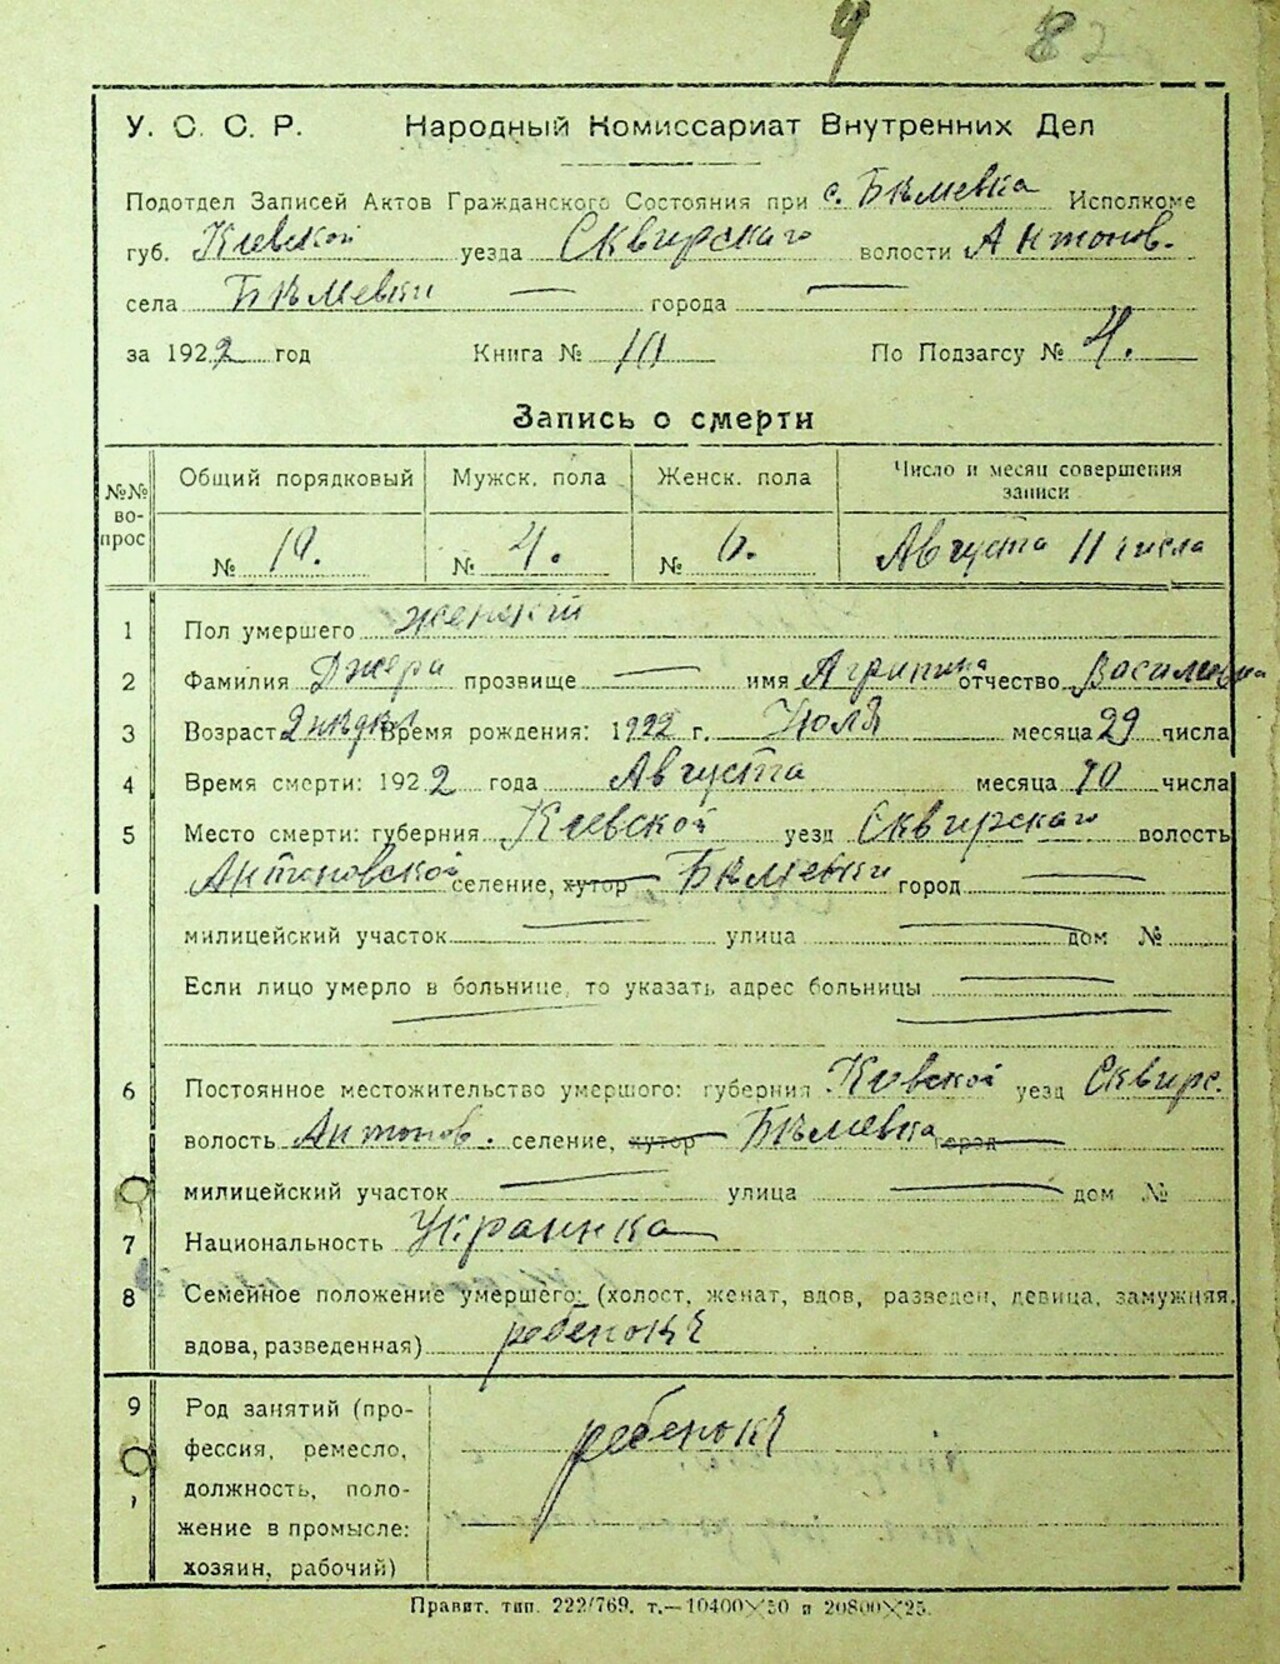 9 82
У. С. С. Р. Народный Комиссариат Внутренних Дел
Подотдел Записей Актов Гражданского Состояния при с. Бѣлиевка Исполкоме
губ. Киевской уезда Сквирскаго волости Антонов.
села Бѣлиевки — города —
за 1922 год Книга № По Подзагсу № 4.
Запись о смерти
№№ вопрос Общий порядковый Мужск. пола Женск. пола Число и месяц совершения записи
№ 10. № 4. № 6. Августа 11 числа
1 Пол умершего женский
2 Фамилия Джери прозвище — имя Агрипина отчество Васильевна
3 Возраст 2 нѣдѣл Время рождения: 1922 г. Июля месяца 29 числа
4 Время смерти: 1922 года Августа месяца 10 числа
5 Место смерти: губерния Киевской уезд Сквирскаго волость
Антоновской селение, хутор Бѣлиевки город —
милицейский участок — улица — дом №
Если лицо умерло в больнице, то указать адрес больницы —
6 Постоянное местожительство умершого: губерния Киевской уезд Сквирс.
волость Антонов. селение, хутор Бѣлиевка город
милицейский участок — улица — дом №
7 Национальность Украинка
8 Семейное положение умершего: (холост, женат, вдов, разведен, девица, замужняя,
вдова, разведенная) ребенокъ
9 Род занятий (про-
фессия, ремесло, ребенокъ
должность, поло-
жение в промысле:
хозяин, рабочий)
Правит. тип. 222/769. т.—10400×50 и 20800×25.